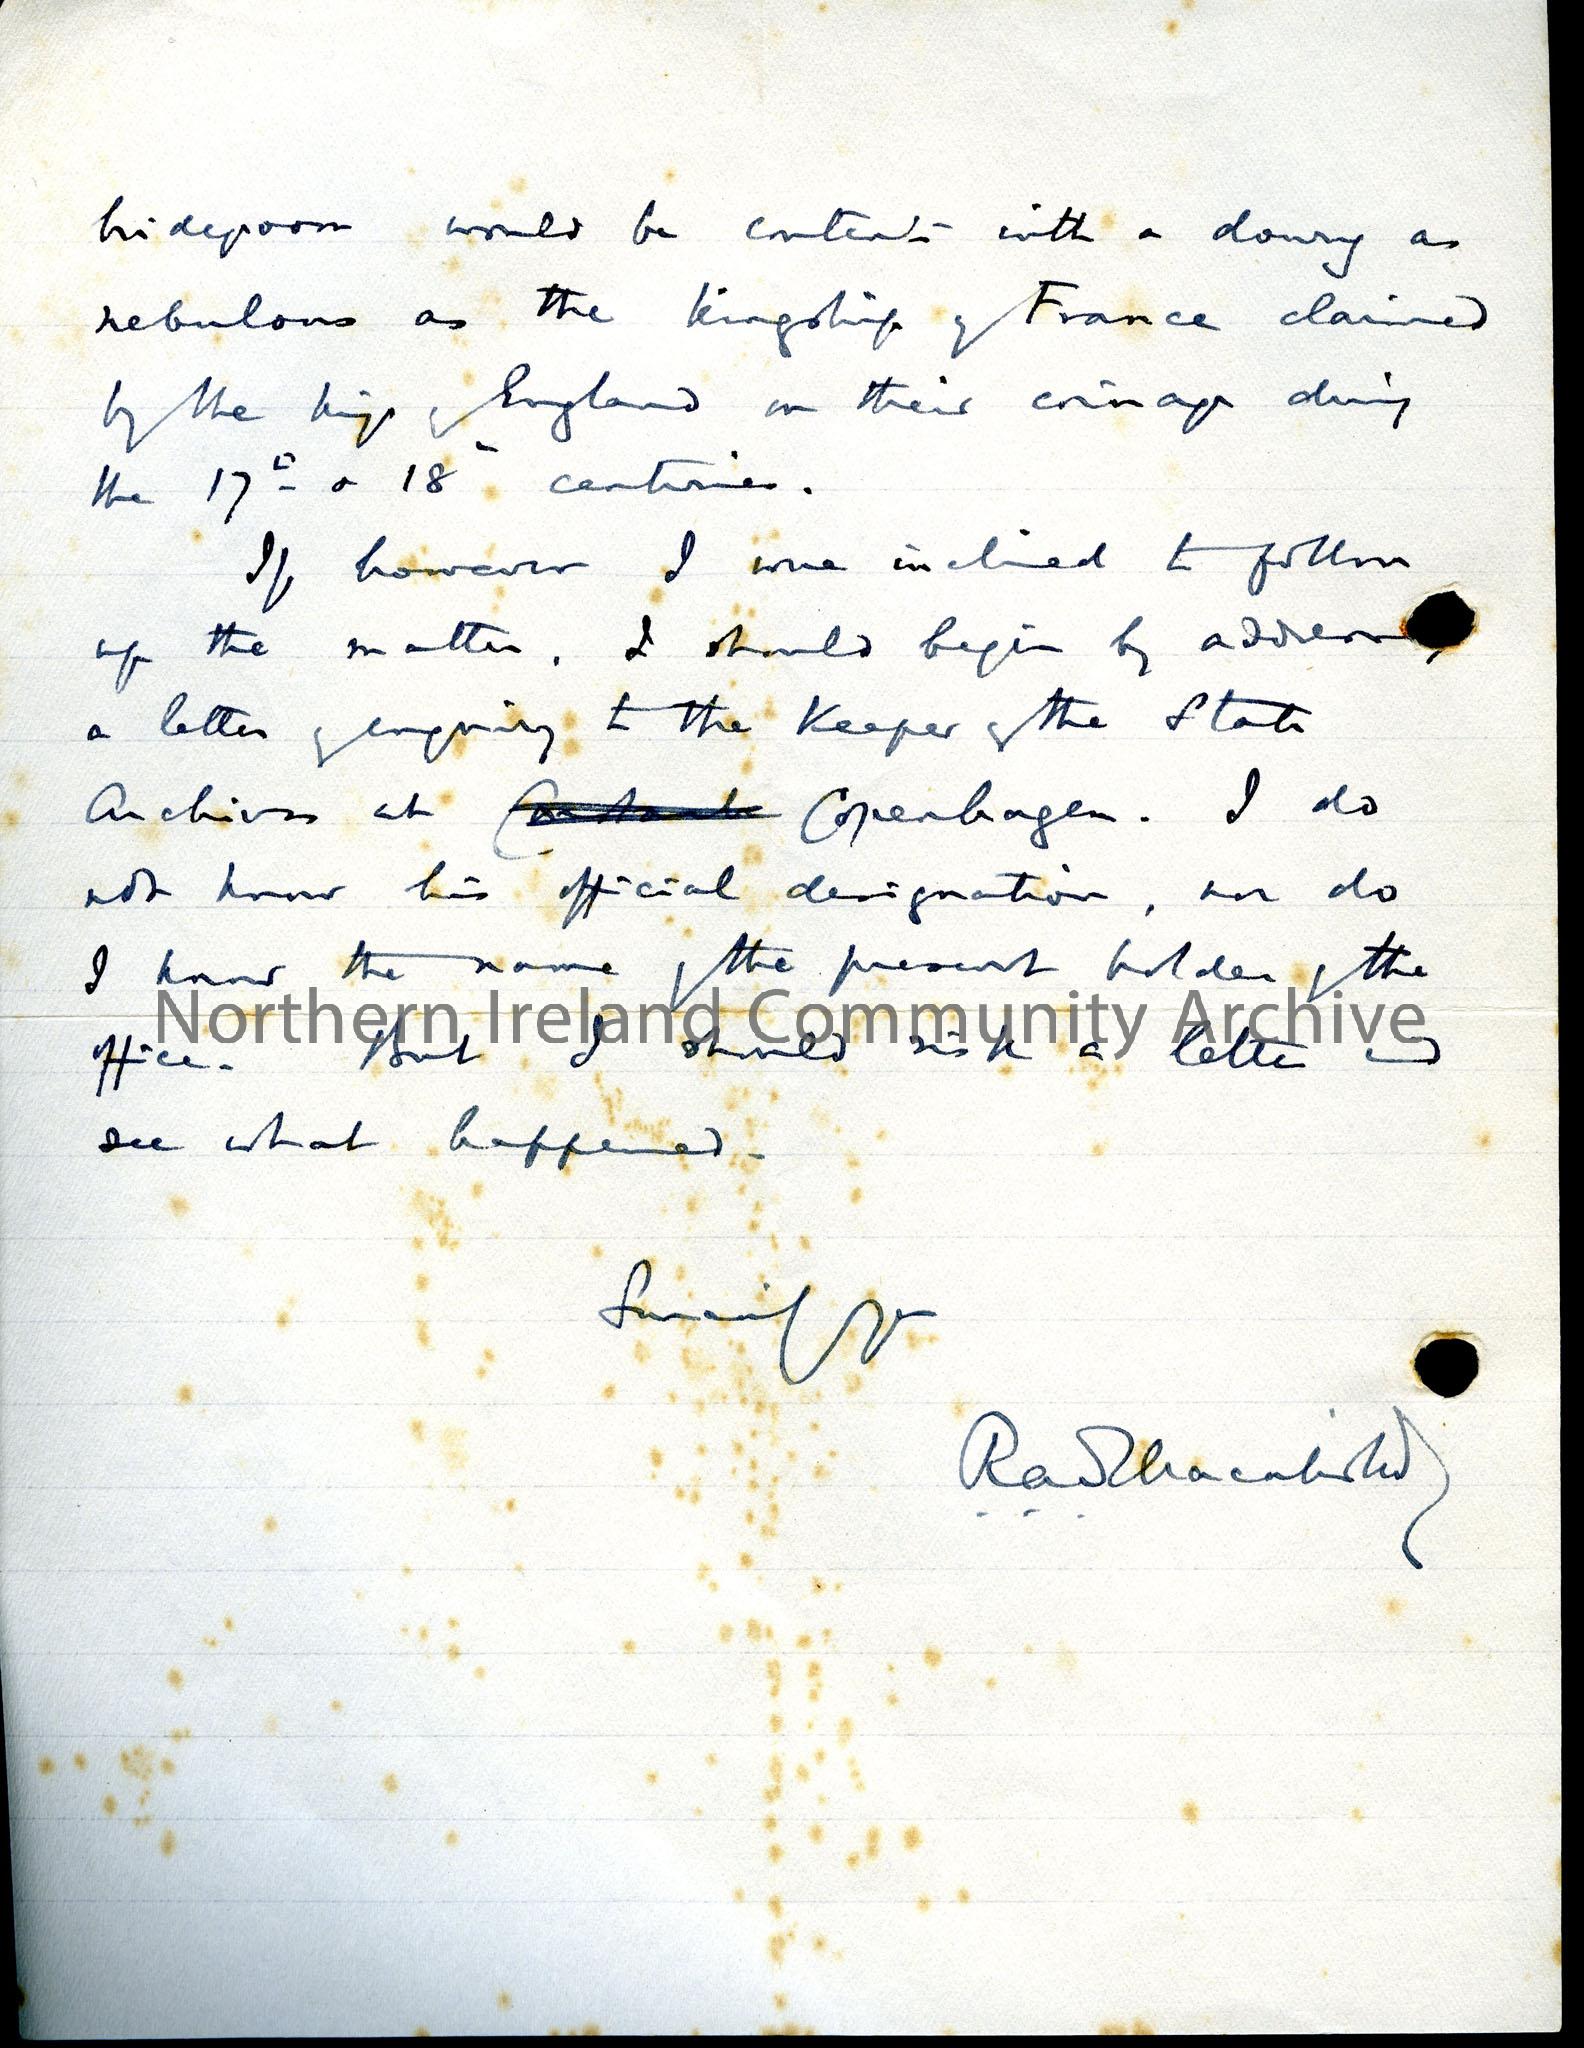 bridegroom would be content with a dowry as
nebulous as the kingship of France claimed
by the kings of England on their coinage during
the 17th & 18th centuries.
If however I were inclined to follow
up the matter, I should begin by addressing
a letter of enquiry to the Keeper of the State
Archives at Copenhagen. I do
not know his official designation, nor do
I know the name of the present holder of the
Northern Ireland Community Archive
office. But I should risk a letter and
see what happened.
Sincerely yrs